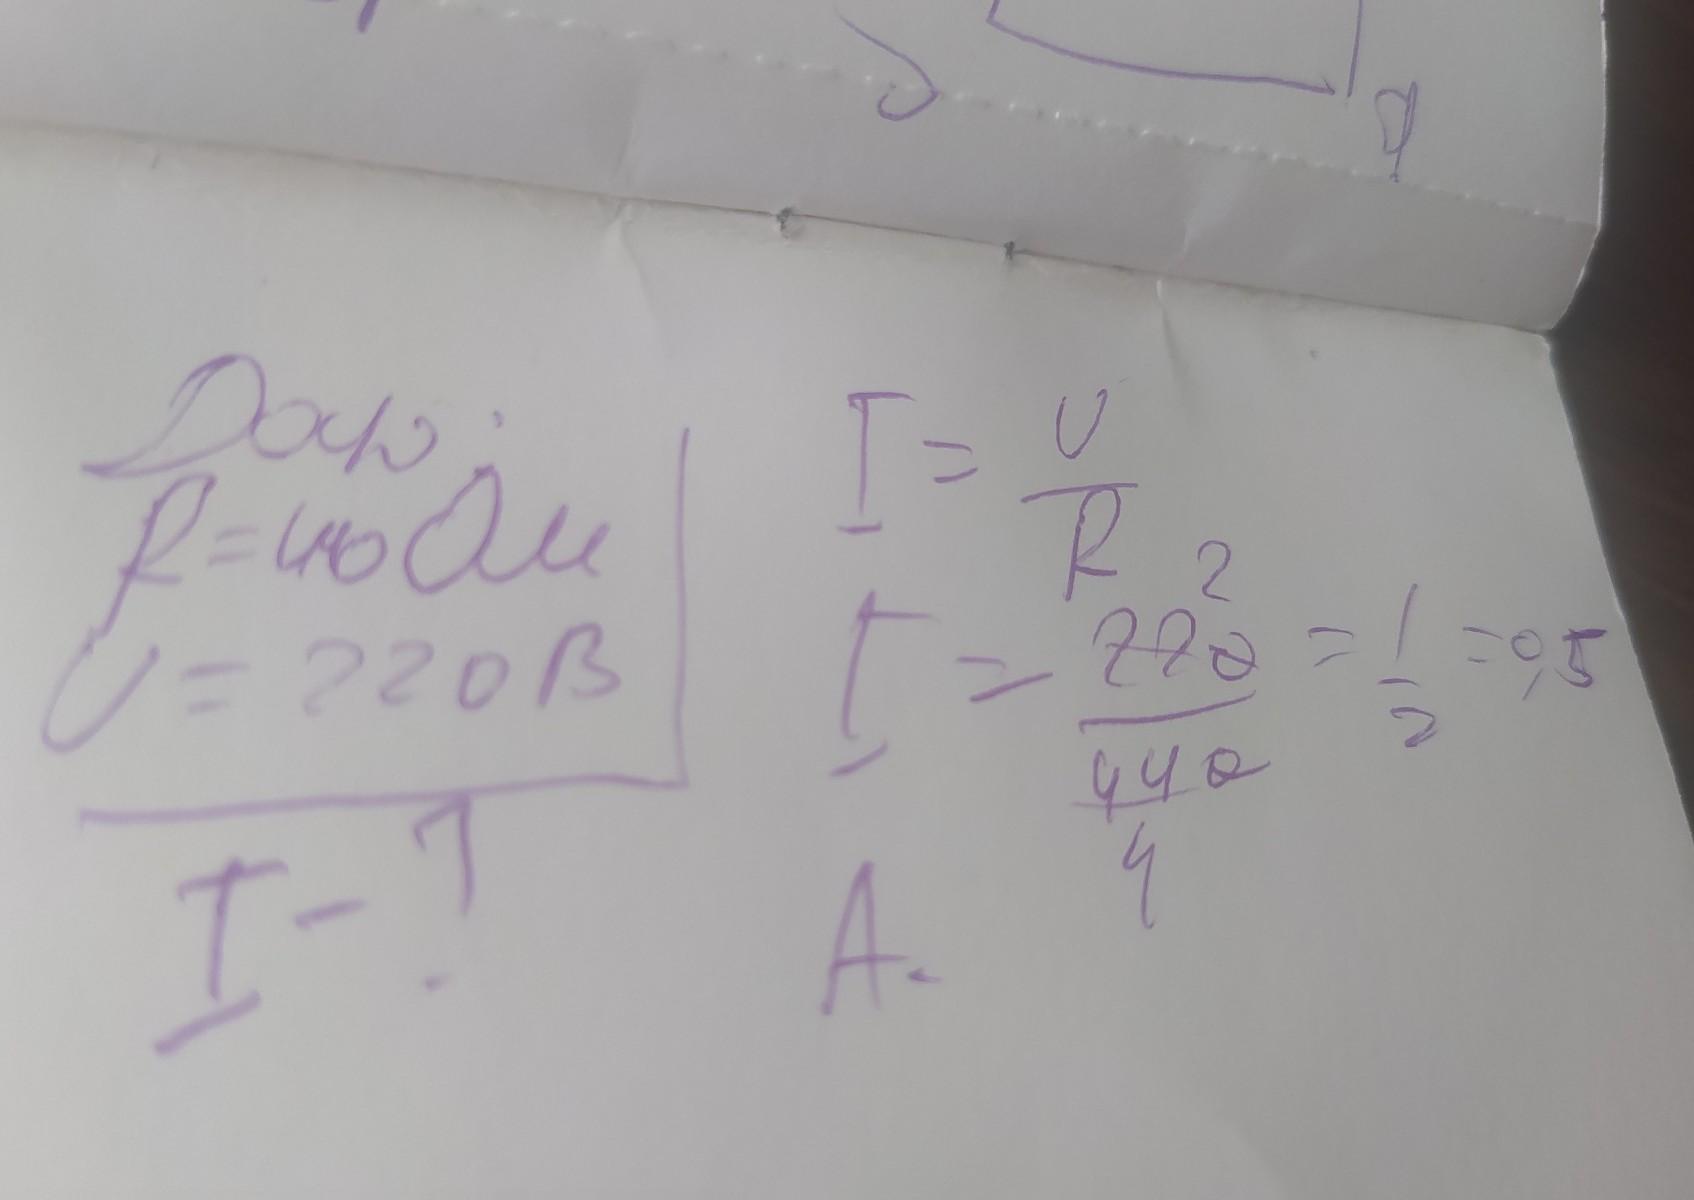 q
Дано:
R = 440 Ом
U = 220 В
I - ?
I = U / R
2
I = 220 / 440 = 1 / 2 = 0,5
4
A.